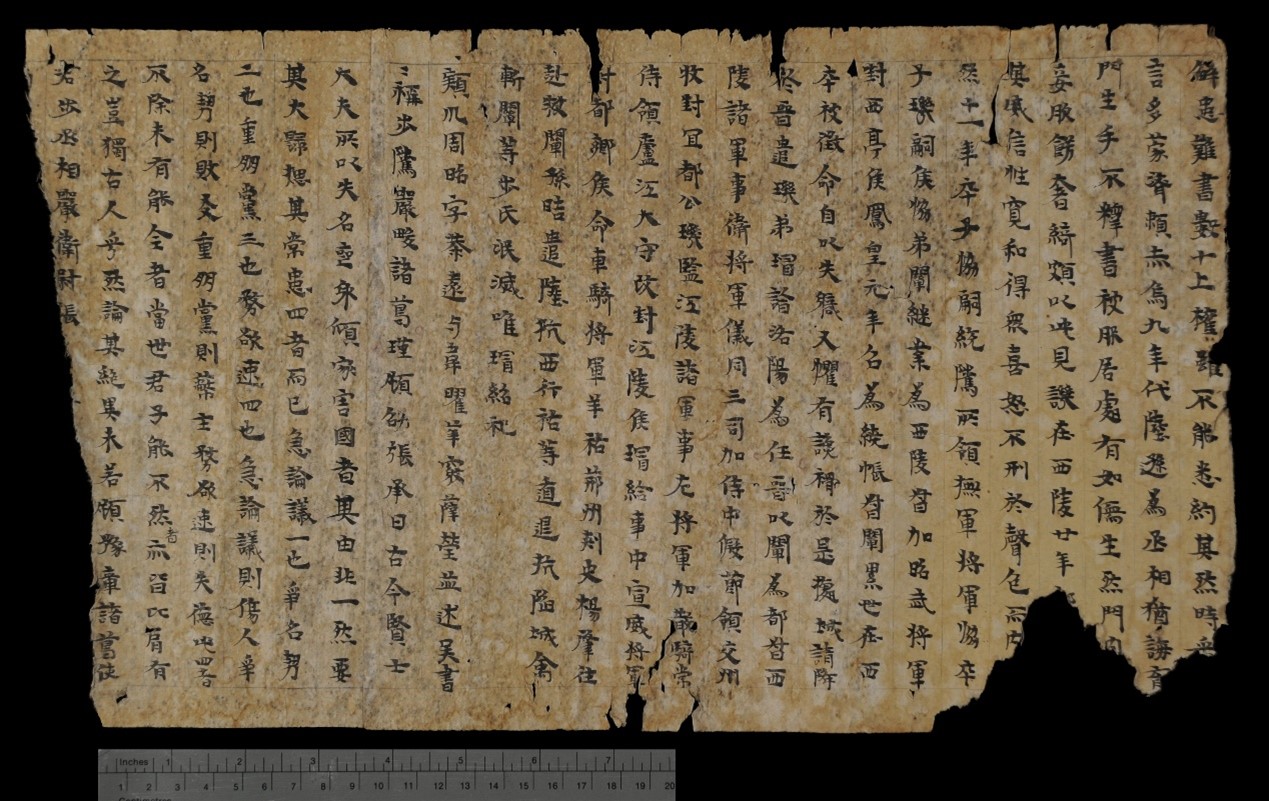 解患難書數十上權雖不能悉納其然時采
言多蒙濟賴赤烏九年代陸遜為丞相猶誨育
門生手不釋書被服居處有如儒生然門內
妾服飾奢綺頗以此見譏在西陵廿年
其威信性寬和得衆喜怒不形於聲色而內
然十一年卒子協嗣統騭所領撫軍將軍協卒
子璣嗣侯協弟闡繼業為西陵督加昭武將軍
封西亭侯鳳皇元年召為繞帳督闡累世在西
卒被徵命自以失職又懼有讒禍於是據城請降
於晉遣璣弟璿詣洛陽為任晉以闡為都督西
陵諸軍事衛將軍儀同三司加侍中假節領交州
牧封宜都公璣監江陵諸軍事左將軍加散騎常
侍領廬江太守改封江陵侯璿給事中宣威將軍
封都鄉侯命車騎將軍羊祜荊州刺史楊肇往
赴救闡孫晧遣陸抗西行祜等遁退抗陷城禽
斬闡等步氏泯滅唯璿紹祀
潁川周昭字恭遠与韋曜華覈薛瑩並述吳書
〻稱步騭嚴畯諸葛瑾顧劭張承曰古今賢士
大夫所以失名喪身傾家害國者其由非一然要
其大歸揔其常患四者而已急論議一也爭名勢
二也重朋黨三也務欲速四也急論議則傷人爭
名勢則敗友重朋黨則蔽主務欲速則失德此四者
不除未有能全者當世君子能不然者亦皆比肩有
之豈獨古人乎然論其絕異未若顧豫章諸葛使
君步丞相嚴衛尉張
Inches 1 2 3 4 5 6 7
1 2 3 4 5 6 7 8 9 10 11 12 13 14 15 16 17 18 19 20